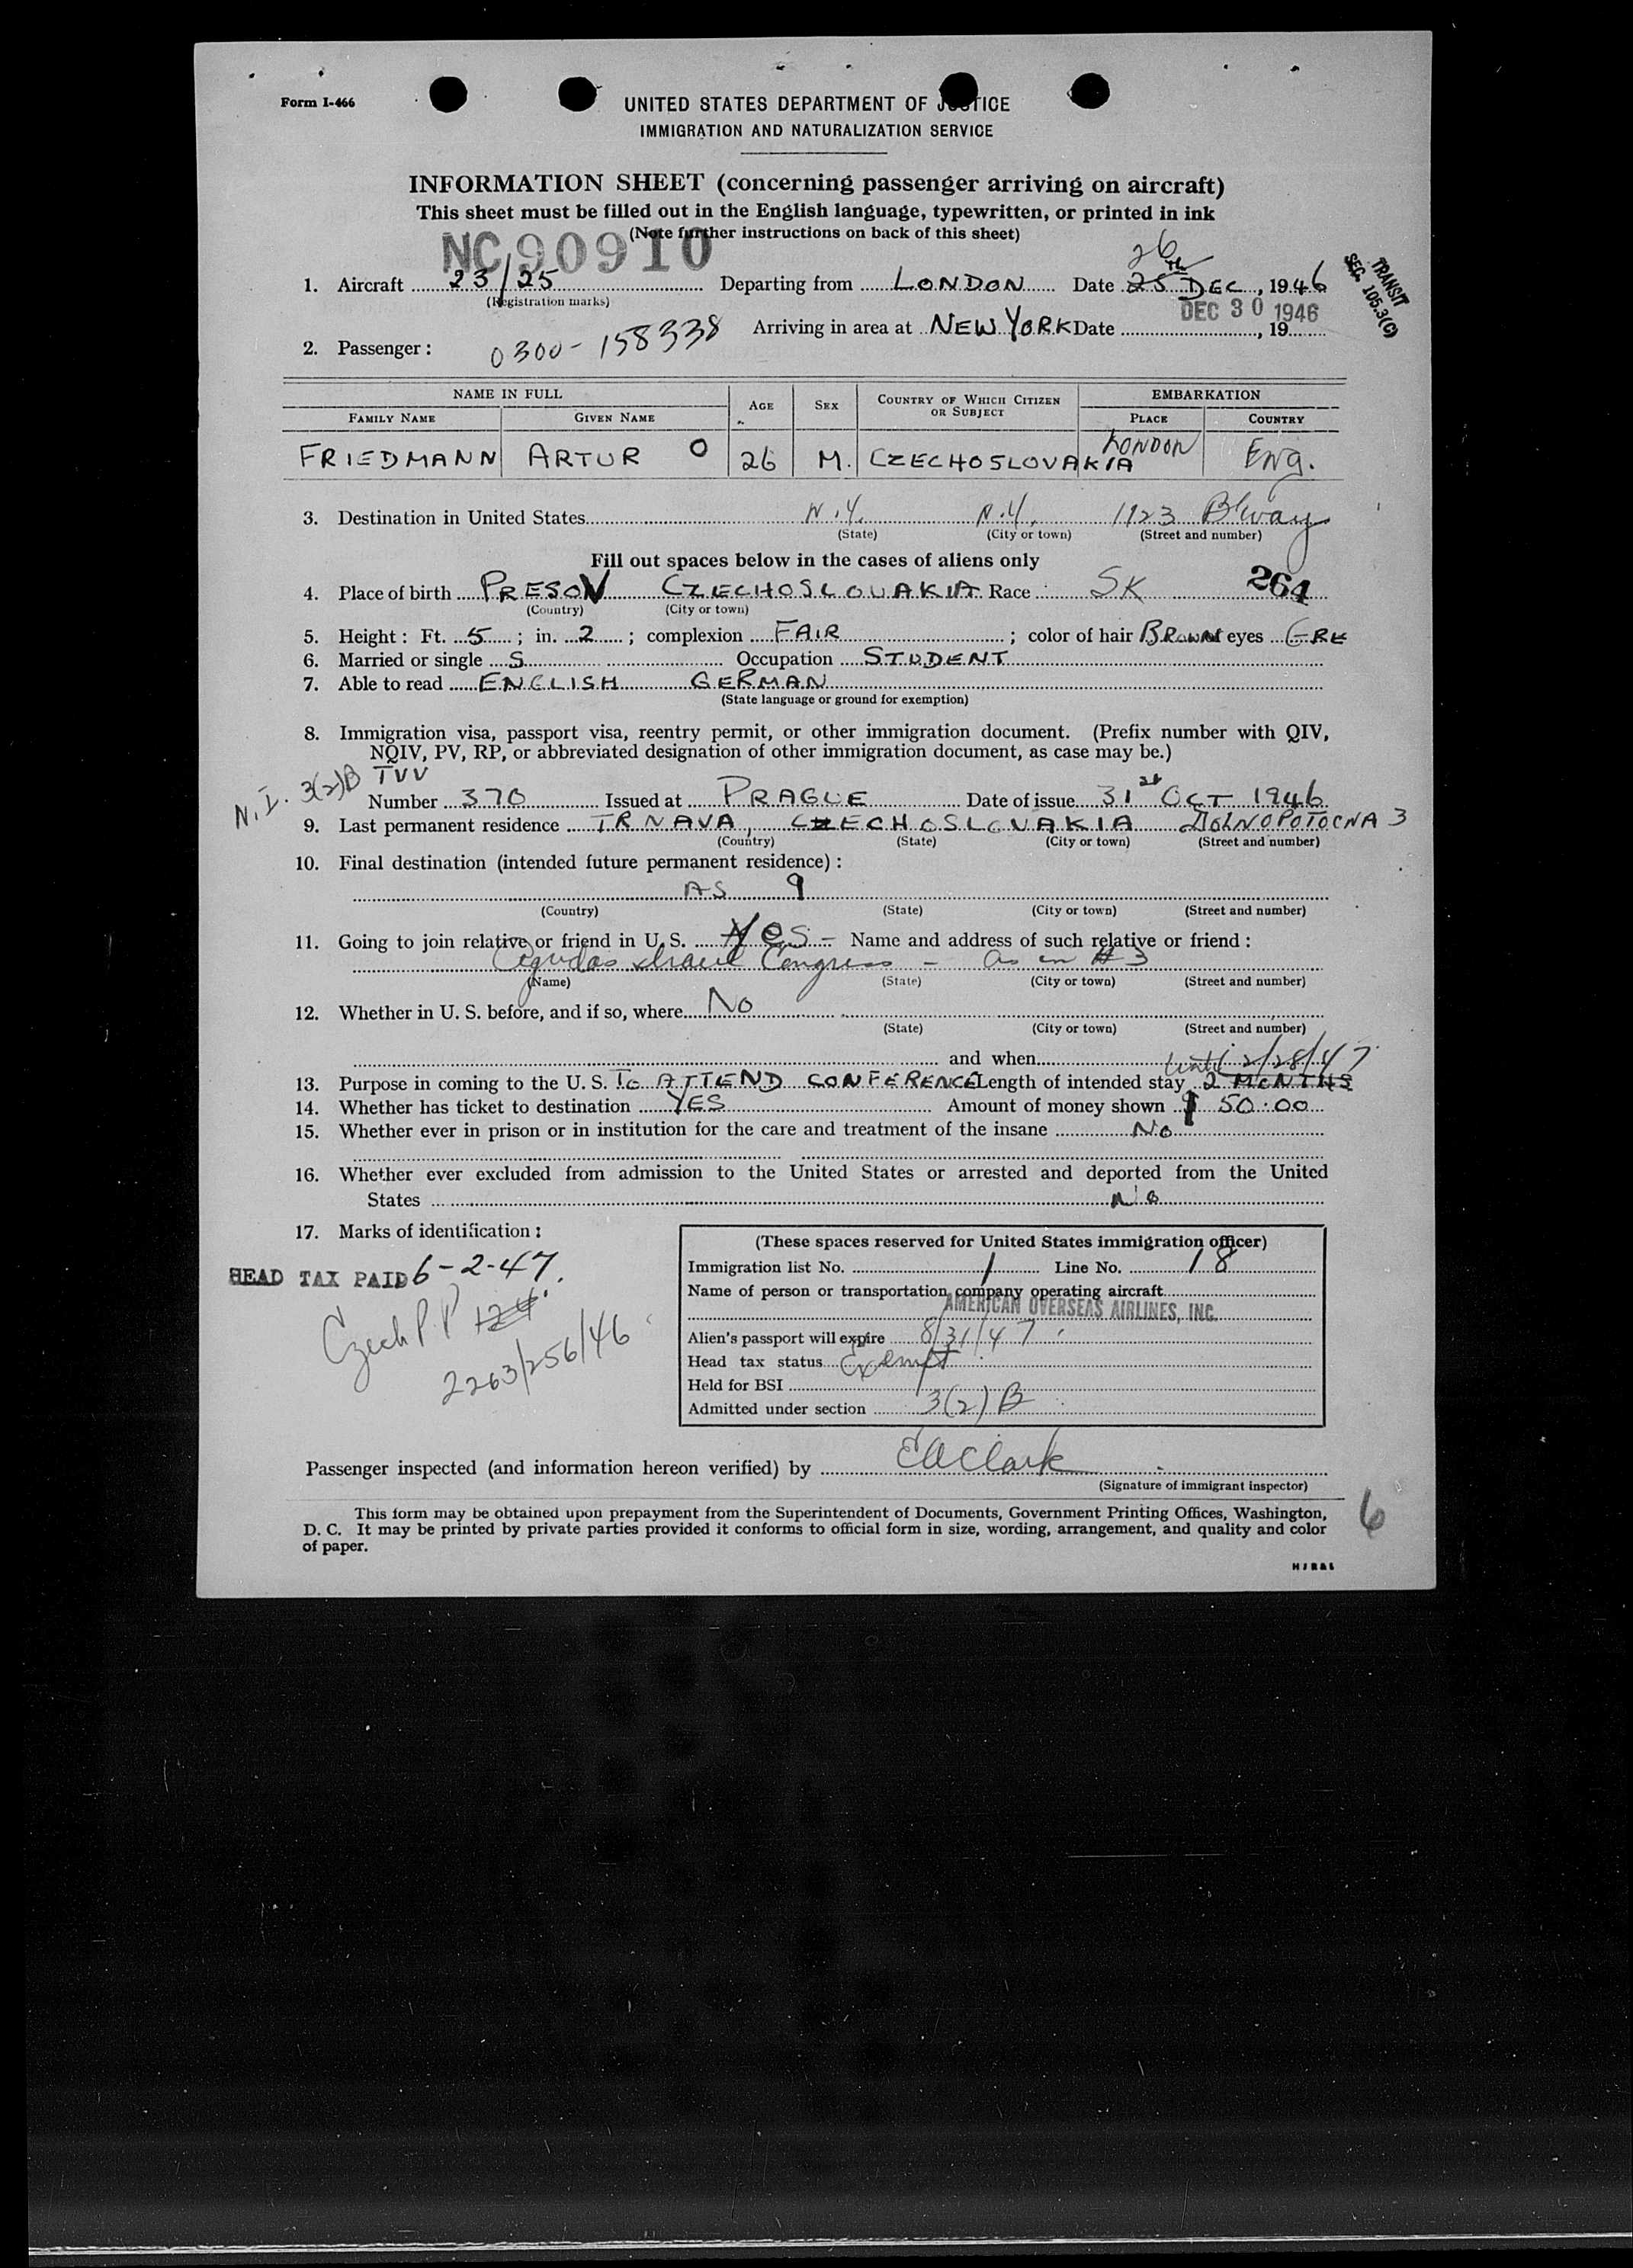 Form I-466
UNITED STATES DEPARTMENT OF JUSTICE
IMMIGRATION AND NATURALIZATION SERVICE
INFORMATION SHEET (concerning passenger arriving on aircraft)
This sheet must be filled out in the English language, typewritten, or printed in ink
(Note further instructions on back of this sheet)
NC 90910
26th
1. Aircraft 23/25 Departing from LONDON Date 25 DEC, 1946
(Registration marks)
TRANSIT
SEC. 105.3(C)
DEC 30 1946
Arriving in area at NEW YORK Date , 19
2. Passenger: 0300-158338
NAME IN FULL AGE SEX COUNTRY OF WHICH CITIZEN OR SUBJECT EMBARKATION
FAMILY NAME GIVEN NAME PLACE COUNTRY
FRIEDMANN ARTUR O 26 M. CZECHOSLOVAKIA LONDON Eng.
3. Destination in United States N.Y. N.Y. 1123 B'way
(State) (City or town) (Street and number)
Fill out spaces below in the cases of aliens only
4. Place of birth PRESOV CZECHOSLOVAKIA Race SK 264
(Country) (City or town)
5. Height: Ft. 5; in. 2; complexion FAIR; color of hair BROWN eyes GRE
6. Married or single S Occupation STUDENT
7. Able to read ENGLISH GERMAN
(State language or ground for exemption)
8. Immigration visa, passport visa, reentry permit, or other immigration document. (Prefix number with QIV,
NQIV, PV, RP, or abbreviated designation of other immigration document, as case may be.)
N.I. 3(2)B TVV
Number 370 Issued at PRAGUE Date of issue 31st OCT 1946
9. Last permanent residence TRNAVA, CZECHOSLOVAKIA DOLNOPOTOCNA 3
(Country) (State) (City or town) (Street and number)
10. Final destination (intended future permanent residence):
AS 9
(Country) (State) (City or town) (Street and number)
11. Going to join relative or friend in U. S. Yes - Name and address of such relative or friend:
Agudas Israel Congress - as in #3
(Name) (State) (City or town) (Street and number)
12. Whether in U. S. before, and if so, where No
(State) (City or town) (Street and number)
and when
until 2/28/47
13. Purpose in coming to the U. S. TO ATTEND CONFERENCE Length of intended stay 2 MONTHS
14. Whether has ticket to destination YES Amount of money shown $ 50.00
15. Whether ever in prison or in institution for the care and treatment of the insane No
16. Whether ever excluded from admission to the United States or arrested and deported from the United
States No
17. Marks of identification:
HEAD TAX PAID 6-2-47.
Czech P.P.
2263/256/46
(These spaces reserved for United States immigration officer)
Immigration list No. 1 Line No. 18
Name of person or transportation company operating aircraft
AMERICAN OVERSEAS AIRLINES, INC.
Alien's passport will expire 8/31/47
Head tax status Exempt
Held for BSI
Admitted under section 3(2) B
Passenger inspected (and information hereon verified) by EAClark
(Signature of immigrant inspector)
This form may be obtained upon prepayment from the Superintendent of Documents, Government Printing Offices, Washington,
D. C. It may be printed by private parties provided it conforms to official form in size, wording, arrangement, and quality and color
of paper.
6